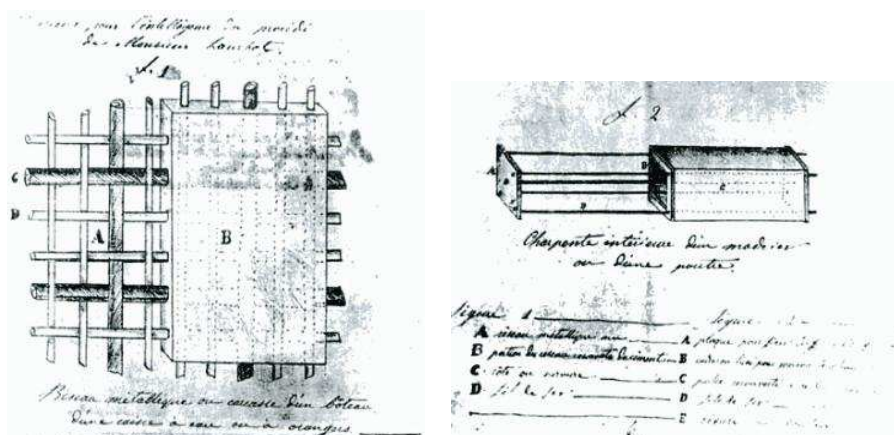 pour l'intelligence du procédé
de Monsieur Lambot.
f. 1
C
D
A
B
Réseau métallique ou carcasse d'un bateau
d'une caisse à eau ou à oranges
f. 2
A
D
C
D
Charpente intérieure d'un madrier
ou d'une poutre.
figure 1
A réseau métallique nu
B portion du réseau recouverte de ciment
C côte ou nervure
D fil de fer
figure 2
A plaque pour fixer
B
C partie recouverte
D fils de fer
E nervure